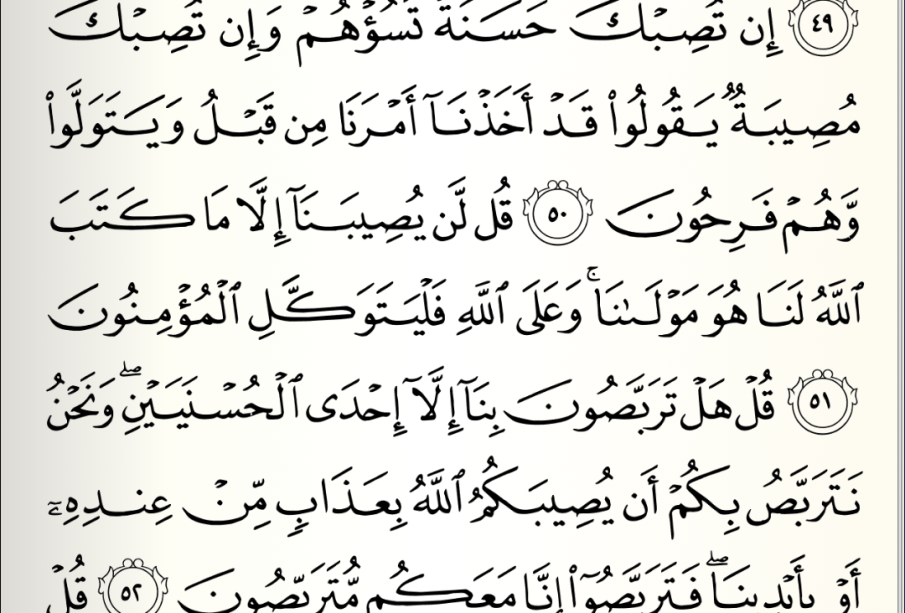 ٤٩ إِن تُصِبْكَ حَسَنَةٌ تَسُؤْهُمْ وَإِن تُصِبْكَ
مُصِيبَةٌ يَقُولُوا۟ قَدْ أَخَذْنَآ أَمْرَنَا مِن قَبْلُ وَيَتَوَلَّوا۟
وَّهُمْ فَرِحُونَ ٥٠ قُل لَّن يُصِيبَنَآ إِلَّا مَا كَتَبَ
ٱللَّهُ لَنَا هُوَ مَوْلَىٰنَا ۚ وَعَلَى ٱللَّهِ فَلْيَتَوَكَّلِ ٱلْمُؤْمِنُونَ
٥١ قُلْ هَلْ تَرَبَّصُونَ بِنَآ إِلَّآ إِحْدَى ٱلْحُسْنَيَيْنِ ۖ وَنَحْنُ
نَتَرَبَّصُ بِكُمْ أَن يُصِيبَكُمُ ٱللَّهُ بِعَذَابٍ مِّنْ عِندِهِۦٓ
أَوْ بِأَيْدِينَا ۖ فَتَرَبَّصُوٓا۟ إِنَّا مَعَكُم مُّتَرَبِّصُونَ ٥٢ قُلْ